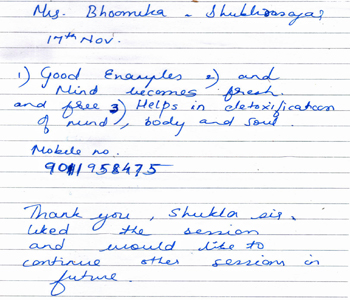 Mrs. Bhoomika - Shubhirasagar
17th Nov.
1) Good Enamples 2) and
Mind becomes fresh.
and free 3) Helps in detoxification
of mind, body and soul.
Mobile no.
9011958475
Thank you, Shukla sir.
liked the session
and would like to
continue other session in
future.